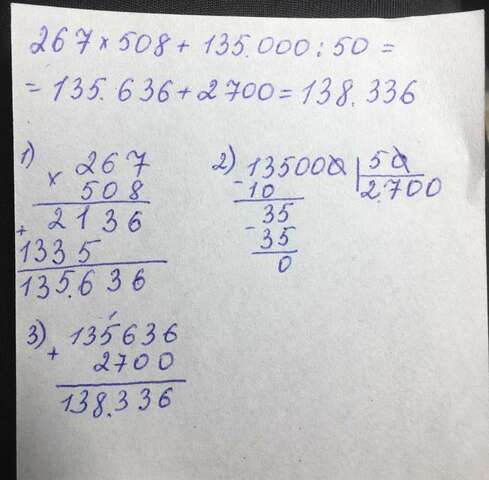 267 × 508 + 135.000 : 50 =
= 135.636 + 2700 = 138.336
1)
× 267
508
+ 2136
1335
135.636
2) 135000 | 50
- 10 | 2.700
35
- 35
0
3) 135636
+ 2700
138.336